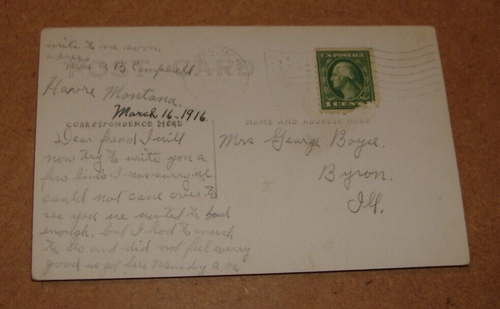 write to me soon.
address
Mrs. G B Campbell
POST CARD
Havre Montana.
March 16-1916
CORRESPONDENCE HERE
NAME AND ADDRESS HERE
U.S. POSTAGE
1 CENT 1
Dear friend I will
now try to write you a
few lines I was sorry we
could not come over to
see you we wanted to bad
enough. but I had to much
to do and did not feel very
good we got here Wensday a.m
Mrs George Boyce.
Byron.
Ill.